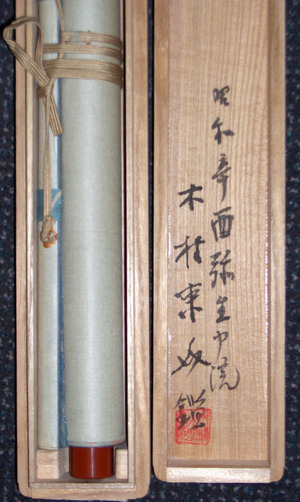 昭和辛酉弥生中浣
木村東女鑑